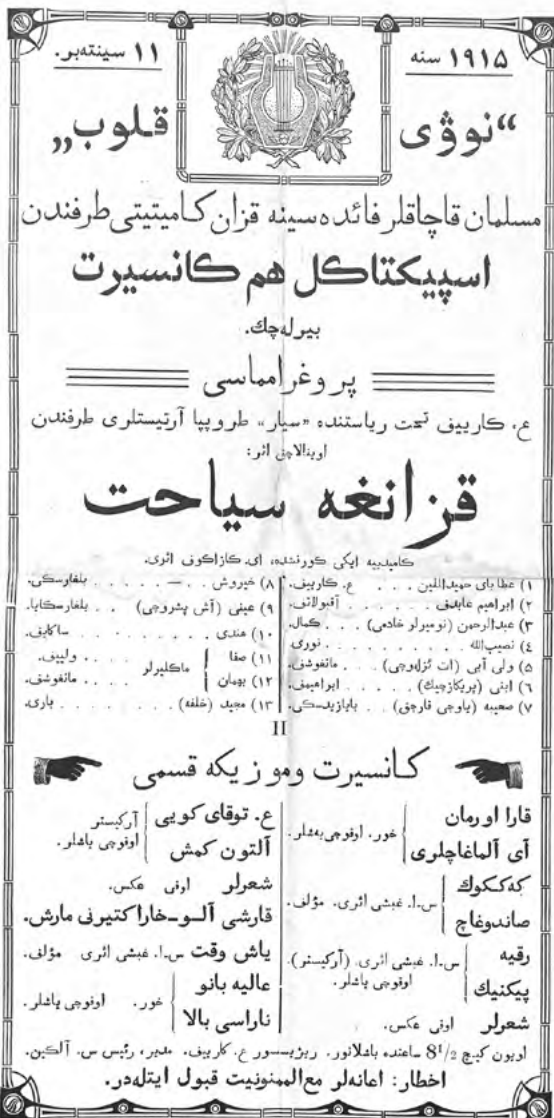 ١٩١۵ سنه
١١ سينتەبر.
“نووۋى قلوب„
مسلمان قاچاقلر فائده سينه قزان كاميتيتى طرفندن
اسپيكتاكل هم كانسيرت
بيرلەچك.
پروغرامماسى
ع. كارييف تحت رياستنده «سيار» طروپپا آرتيستلرى طرفندن
اوينالاچق اثر:
قزانغه سياحت
كاميدييه ايكى كورنشده، اى. كازاكوف اثرى.
١) عطا باى حميداللين . . . ع. كارييف.
٢) ابراهيم عابديف . . . . آقبولاتف.
٣) عبدالرحمن (نوميرلر خادمى) . . . كمال.
٤) نصيب الله . . . . . . . نورى.
٥) ولى آبى (ات ئزلەوچى) . . . مانغوشف.
٦) ابنى (پريكازچيك) . . . . ابراهيمف.
٧) صعيبه (ياوچى قارچق) . . بايازيدسكى.
٨) خيروش . — . . . . . بلغارسكى.
٩) عينى (آش پشروچى) . . بلغارسكايا.
١٠) هندى . . . . . . . . ساكايف.
١١) صفا } ماكليرلر . . . . . ولييف.
١٢) بهمان } . . . . مانغوشف.
١٣) مجيد (خلفه) . . . . . . بارى.
II
كانسيرت وموزيكه قسمى
قارا اورمان
آى آلماغاچلرى } خور. اوقوچى يەشلر.
كەككوك
صاندوغاچ } س.ا. غبشى اثرى. مؤلف.
رقيه
پيكنيك } س.ا. غبشى اثرى. (آركيستر). اوقوچى ياشلر.
شعرلر اوقى عكس.
ع. توقاى كويى
آلتون كمش } آركيستر اوقوچى ياشلر.
شعرلر اوقى عكس.
قارشى آلو-خاراكتيرنى مارش.
ياش وقت س.ا. غبشى اثرى مؤلف.
عاليه بانو
ناراسى بالا } خور. اوقوچى ياشلر.
اويون كيچ 8½ ساعتده باشلانور. ريژيسسور ع. كارييف. مدير، رئيس س. آلكين.
اخطار: اعانەلر مع الممنونيت قبول ايتلەدر.